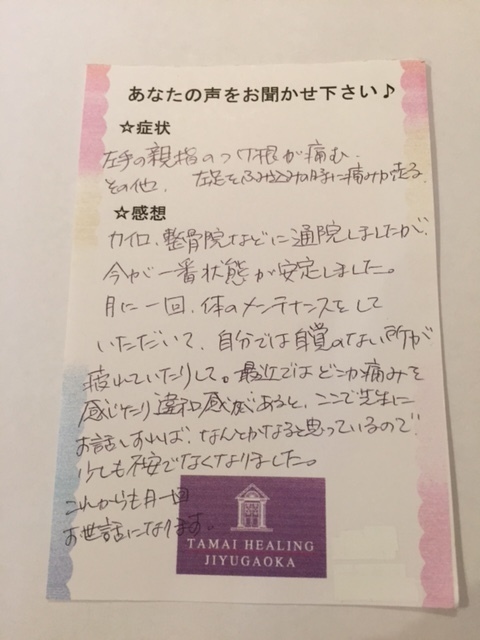 あなたの声をお聞かせ下さい♪
☆症状
左手の親指のつけ根が痛む。
その他。 左足をふみ込みの時に痛みが走る。
☆感想
カイロ、整骨院などに通院しましたが、
今が一番状態が安定しました。
月に一回、体のメンテナンスをして
いただいて、自分では自覚のない所が
疲れていたりして。最近ではどこか痛みを
感じたり違和感があると、ここで先生に
お話しすれば、なんとかなると思っているので
少しも不安でなくなりました。
これからも月一回
お世話になります。
TAMAI HEALING
JIYUGAOKA